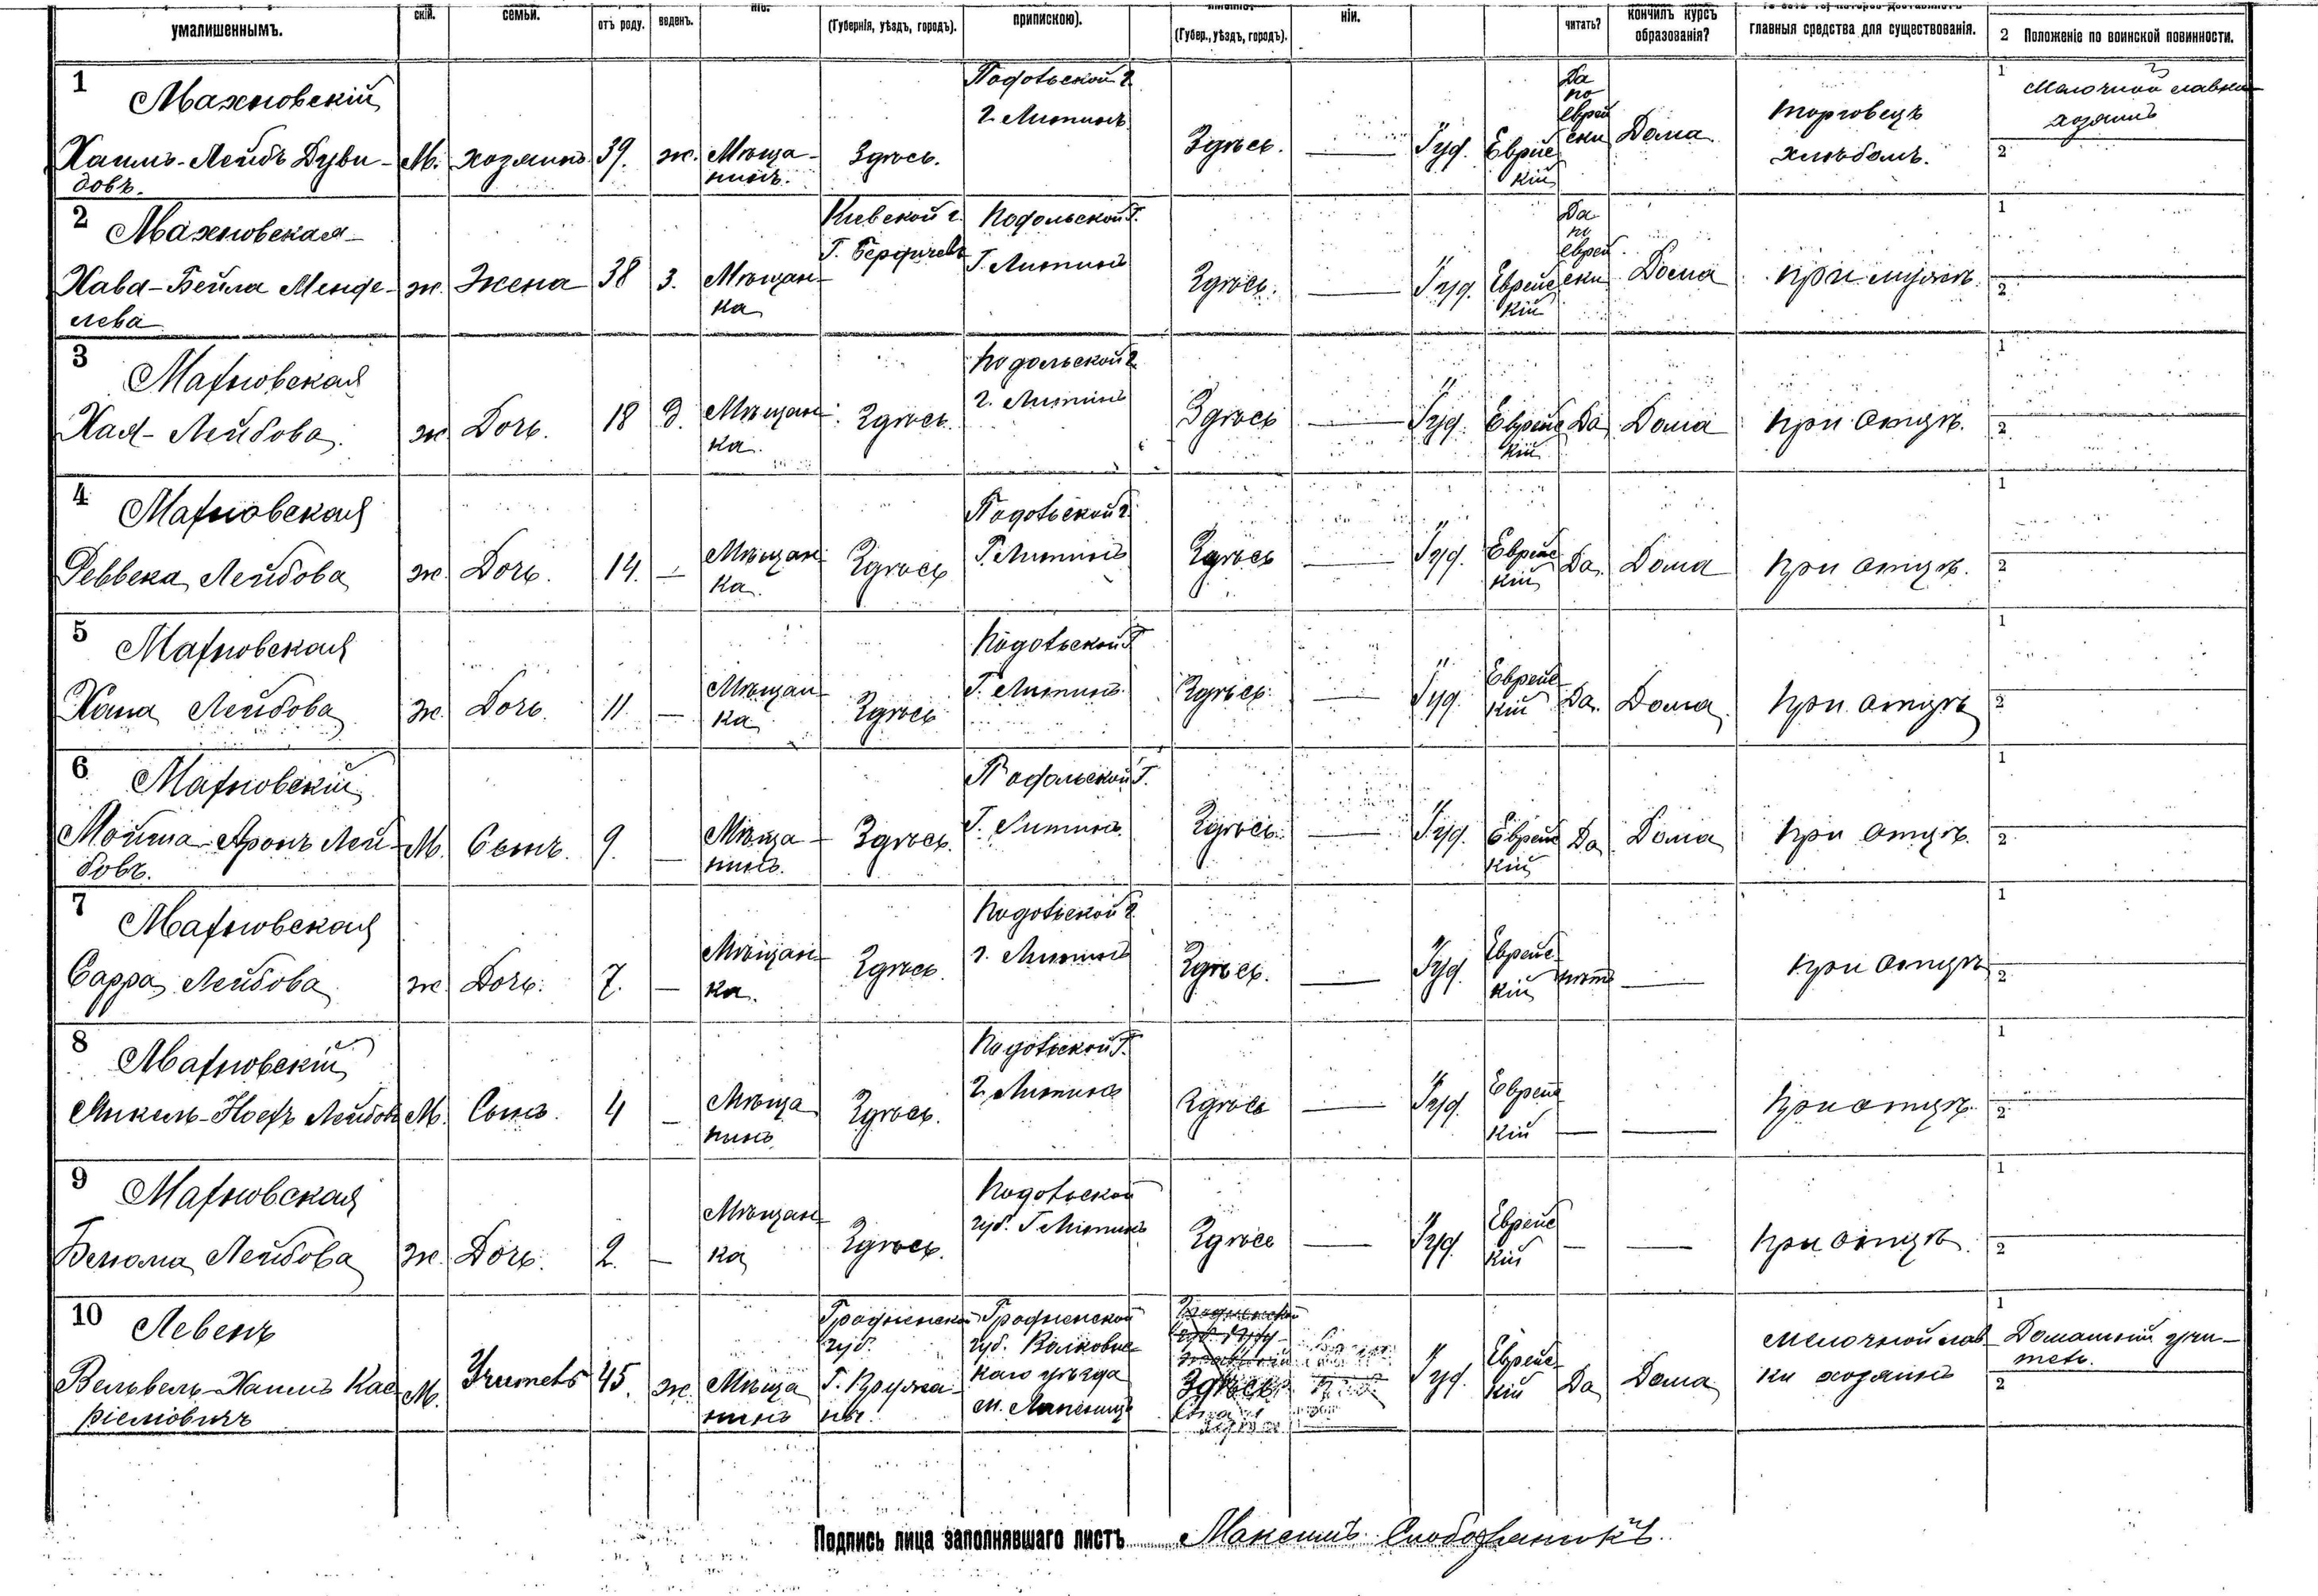 умалишеннымъ. скій. семьи. отъ роду. веденъ. (Губернія, уѣздъ, городъ). припискою). (Губер., уѣздъ, городъ). ніи. читать? кончилъ курсъ образованія? главныя средства для существованія. 2 Положеніе по воинской повинности.
1 Махновскій
Хаимъ-Лейбъ Дуви-
довъ. М. хозяинъ 39. ж. Мѣща-
нинъ. Здѣсь. Подольской г.
г. Литинъ Здѣсь. — Іуд. Еврейс
кій Да
по
еврей
ски Дома торговецъ
хлѣбомъ. 1 Мелочной лавки
хозяинъ
2
2 Махновская
Хава-Бейла Менде-
лева ж. Жена 38 з. Мѣщан-
ка Кіевской г.
Г. Бердичевъ Подольской Г.
Г. Литинъ Здѣсь. — Іуд. Еврейс
кій Да
по
еврей
ски Дома при мужѣ. 1
2
3 Махновская
Хая-Лейбова ж Дочь. 18 д. Мѣщан-
ка. Здѣсь. Подольской г.
г. Литинъ Здѣсь — Іуд. Еврейс
кій Да Дома при отцѣ. 1
2
4 Махновская
Реввека Лейбова ж. Дочь. 14. — Мѣщан-
ка. Здѣсь Подольской г.
Г. Литинъ Здѣсь — Іуд. Еврейс
кій Да. Дома при отцѣ. 1
2
5 Махновская
Хана Лейбова ж. Дочь. 11 — Мѣщан-
ка Здѣсь Подольской Г.
Г. Литинъ. Здѣсь. — Іуд. Еврейс
кій Да. Дома при отцѣ 1
2
6 Махновскій
Мойша-Аронъ Лей-
бовъ. М. Сынъ. 9. — Мѣща-
нинъ. Здѣсь. Подольской Г.
Г. Литинъ. Здѣсь. — Іуд. Еврейс
кій Да Дома при отцѣ. 1
2
7 Махновская
Сарра Лейбова ж. Дочь. 7. — Мѣщан-
ка. Здѣсь. Подольской г.
г. Литинъ Здѣсь. — Іуд. Еврейс
кій нѣтъ — при отцѣ 1
2
8 Махновскій
Лейбовъ М. Сынъ. 4 — Мѣща
нинъ Здѣсь. Подольской Г.
г. Литинъ Здѣсь — Іуд. Еврейс
кій — — при отцѣ. 1
2
9 Махновская
Лейбова ж. Дочь. 2. — Мѣщан-
ка Здѣсь. Подольской
губ. Г Литинъ Здѣсь — Іуд. Еврейс
кій — — при отцѣ. 1
2
10 Левенъ
Вельвель-Хаимъ
М. Учитель 45. ж. Мѣща
нинъ Гродненской
губ. Гродненской
губ. Волковыс-
каго уѣзда
м. Здѣсь Іуд. Еврейс-
кій Да Дома мелочной лав
ки хозяинъ 1 Домашній учи-
тель.
2
Подпись лица заполнявшаго листъ Максимъ Слободянюкъ.